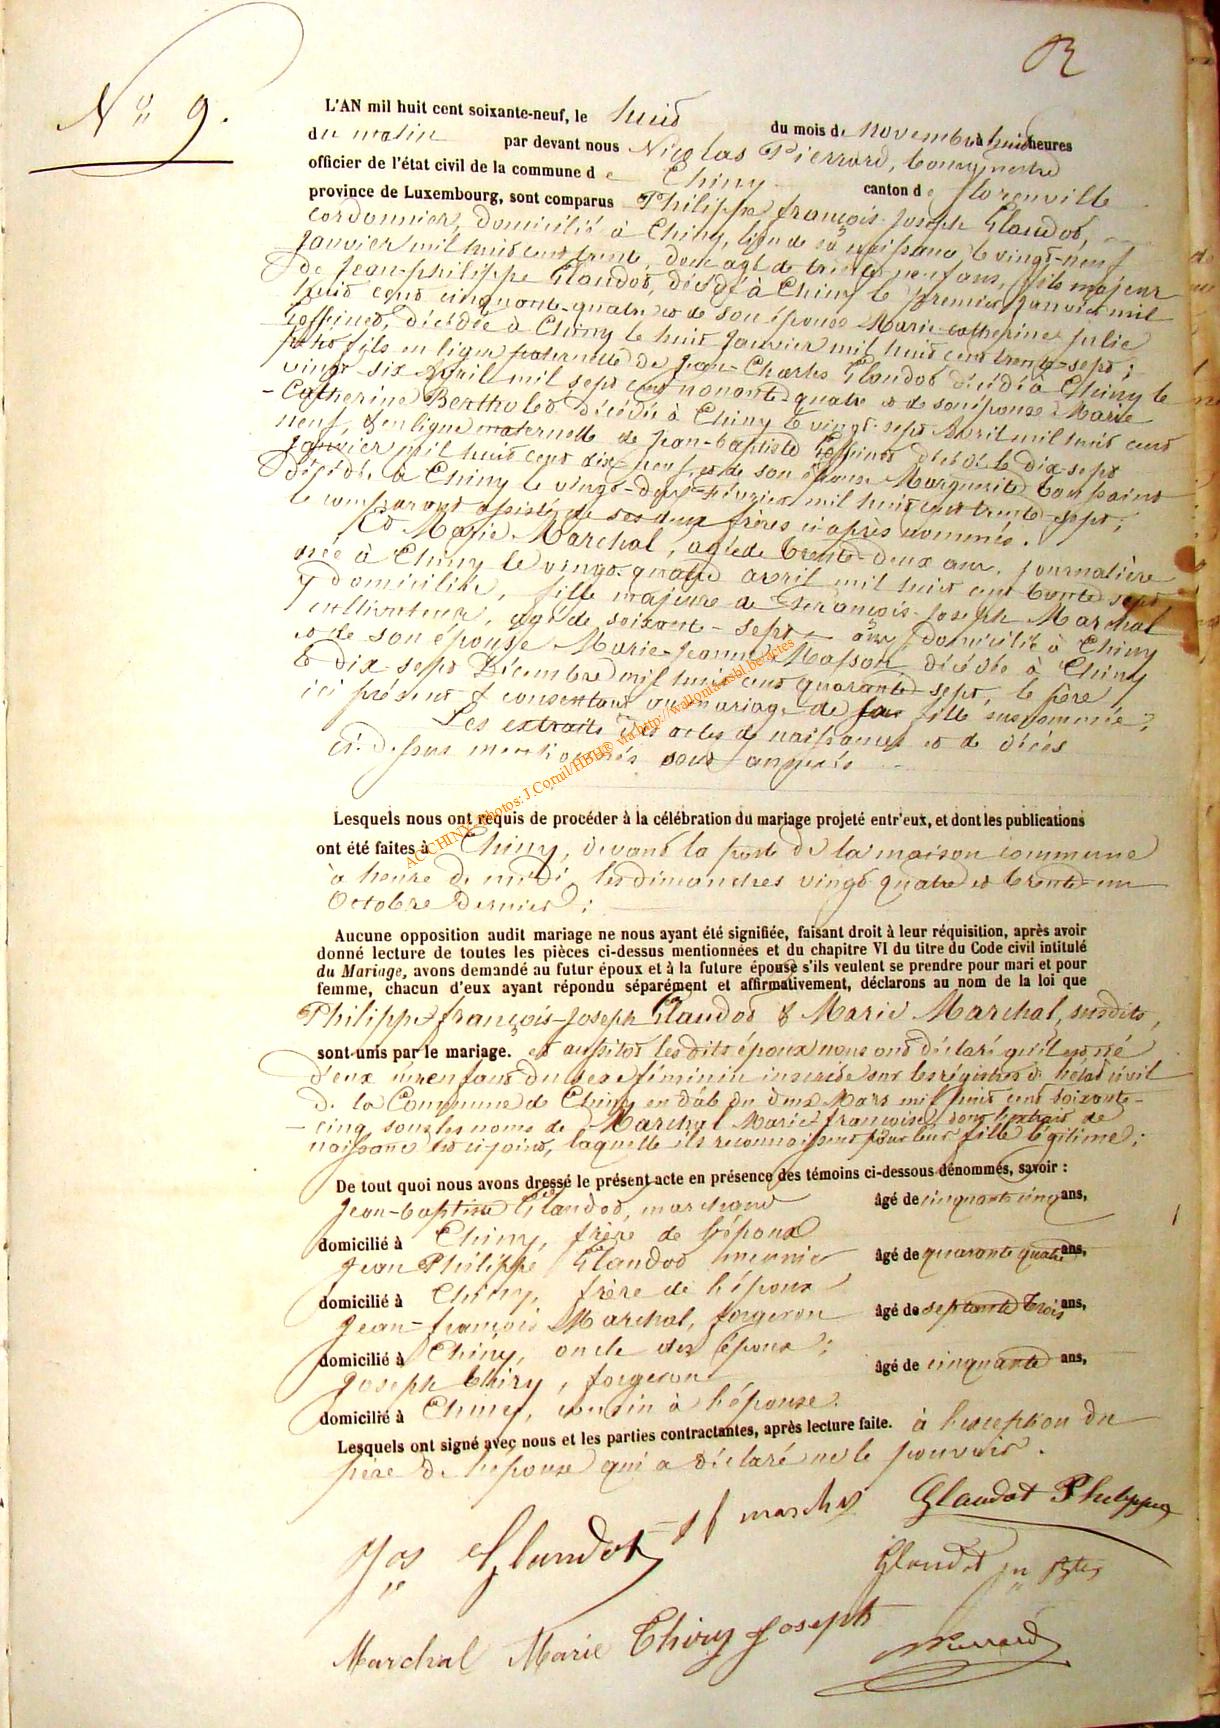 R
N° 9.
L'AN mil huit cent soixante-neuf, le huit du mois de novembre à huit heures
du matin par devant nous Nicolas Pierrard, bourgmestre
officier de l'état civil de la commune de Chiny canton de florenville
province de Luxembourg, sont comparus Philippe françois-joseph Glaudot,
cordonnier, domicilié à Chiny, lieu de sa naissance, le vingt-neuf
janvier mil huit cent trente, donc agé de trente neuf ans, fils majeur
de Jean-philippe Glaudot, décédé à Chiny le premier janvier mil
huit cent cinquante-quatre et de son épouse Marie-catherine julie
Goffinet, décédée à Chiny le huit janvier mil huit cent trente-sept;
petit fils en ligne paternelle de Jean-Charles Glaudot décédé à Chiny le
vingt-six avril mil sept cent nonante-quatre et de son épouse Marie
-Catherine Bertholet décédée à Chiny le vingt-sept avril mil huit cent
neuf, & en ligne maternelle de Jean-baptiste Goffinet décédé le dix-sept
janvier mil huit cent dix-neuf, et de son épouse Marguerite
décédée à Chiny le vingt-deux février mil huit cent trente-sept;
le comparant assisté de ses deux frères ci-après nommés.
Et Marie Marchal, agée de trente-deux ans, journalière
née à Chiny le vingt-quatre avril mil huit cent trente-sept
y domiciliée, fille majeure de François-joseph Marchal
cultivateur, agé de soixante-sept ans, domicilié à Chiny
et de son épouse Marie-jeanne Masson, décédée à Chiny
le dix-sept Décembre mil huit cent quarante-sept, le père
ici présent & consentant au mariage de sa fille susnommée;
Les extraits des actes de naissances et de décès
ci-dessus mentionnés sont annexés
AC CHINY - photos: J.Cornil/HBH© via http://wallonia.asbl.be/actes
Lesquels nous ont requis de procéder à la célébration du mariage projeté entr'eux, et dont les publications
ont été faites à Chiny, devant la porte de la maison commune
à heure de midi, les dimanches vingt-quatre et trente-un
Octobre dernier;
Aucune opposition audit mariage ne nous ayant été signifiée, faisant droit à leur réquisition, après avoir
donné lecture de toutes les pièces ci-dessus mentionnées et du chapitre VI du titre du Code civil intitulé
du Mariage, avons demandé au futur époux et à la future épouse s'ils veulent se prendre pour mari et pour
femme, chacun d'eux ayant répondu séparément et affirmativement, déclarons au nom de la loi que
Philippe françois-joseph Glaudot & Marie Marchal, susdits,
sont unis par le mariage. et aussitôt les dits époux nous ont déclaré qu'il est né
d'eux un enfant du sexe féminin inscrite sur les régistres de l'état civil
de la Commune de Chiny en date du deux Mars mil huit cent soixante-
-cinq sous les noms de Marchal Marie françoise, dont l'extrait de
naissance est ci-joint, laquelle ils reconnaissent pour leur fille légitime;
De tout quoi nous avons dressé le présent acte en présence des témoins ci-dessous dénommés, savoir :
Jean-baptiste Glaudot, marchand âgé de cinquante cinq ans,
domicilié à Chiny, frère de l'époux
Jean Philippe Glaudot meunier âgé de quarante quatre ans,
domicilié à Chiny, frère de l'époux
Jean-françois Marchal, forgeron âgé de septante trois ans,
domicilié à Chiny, oncle de l'épouse;
Joseph thiry, forgeron âgé de cinquante ans,
domicilié à Chiny, cousin à l'épouse.
Lesquels ont signé avec nous et les parties contractantes, après lecture faite. à l'exception du
père de l'épouse qui a déclaré ne le pouvoir.
Jos Glaudot Glaudot Philippe
Glaudot jn Bte
Marchal Marie Thiry Joseph Pierrard